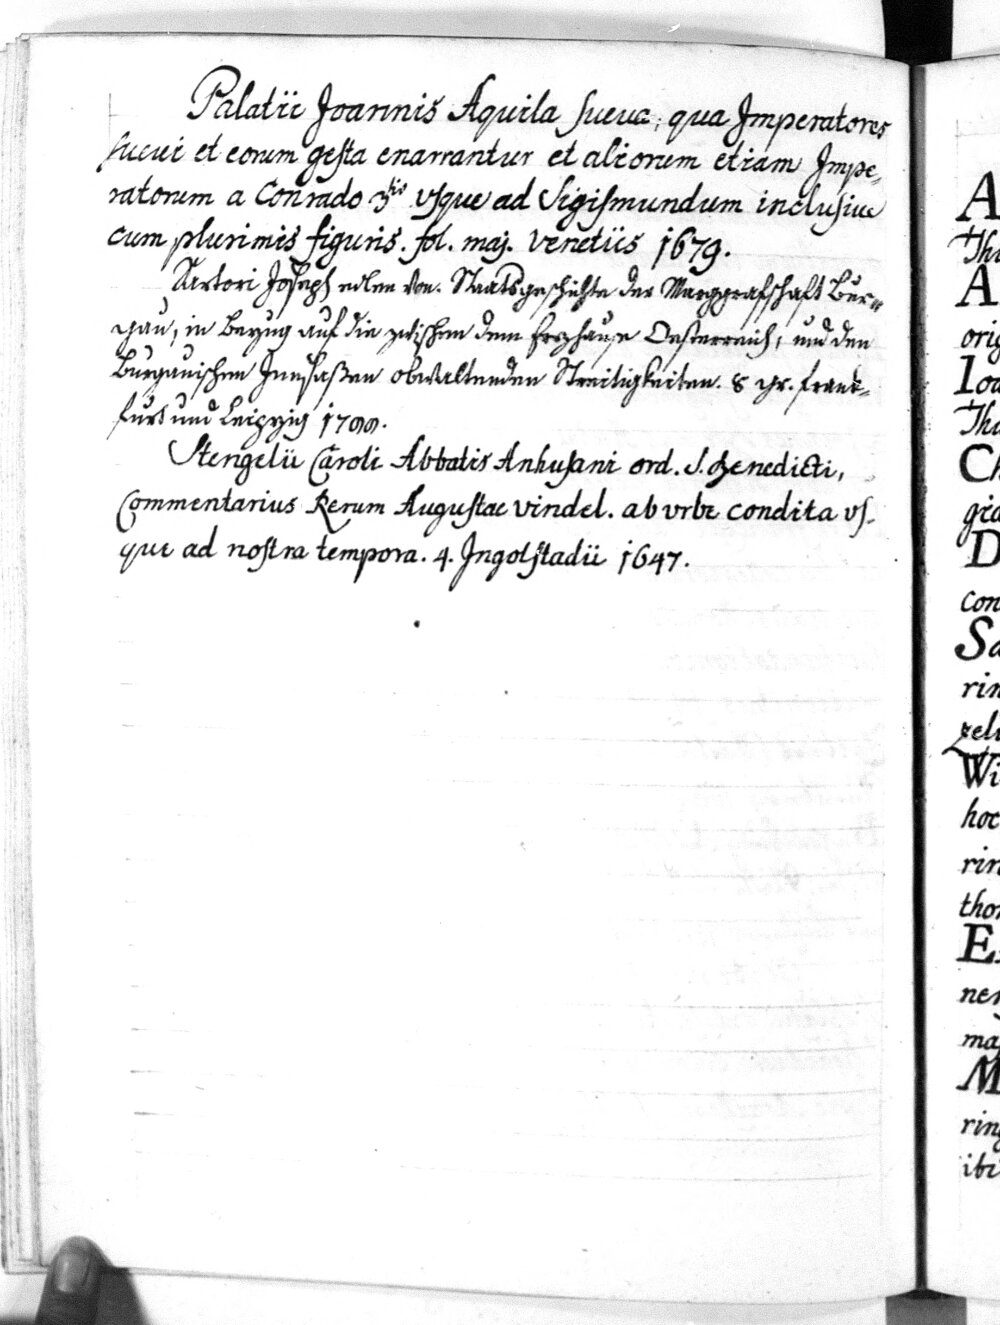 Palatii Joannis Aquila Sueva, qua Imperatores
Suevi et eorum gesta enarrantur et aliorum etiam Impe-
ratorum a Conrado 3tio usque ad Sigismundum inclusive
cum plurimis figuris. fol. maj. Venetiis 1679.
Sartori Joseph edlen von. Staatsgeschichte der Marggrafschaft Bur-
gau, in Bezug auf die zwischen dem Erzhause Oesterreich, und den
Burgauischen Innsaßen obwaltenden Streitigkeiten. 8 gr. Frank-
furt und Leipzig
Stengelii Caroli Abbatis Anhusani ord. S. Benedicti,
Commentarius Rerum Augustae vindel. ab vrbe condita us-
que ad nostra tempora. 4. Ingolstadii 1647.
A
Thu
A
orig
Ioa
Thu
Ch
gia
D
con
Sa
rin
zeli
Wi
hoc
rin
thor
E
ner
ma
M
ring
ibi